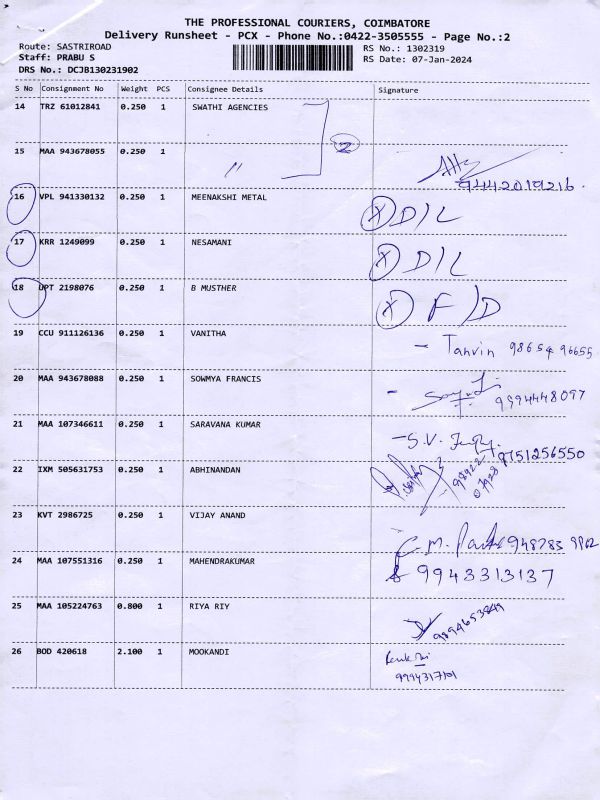 THE PROFESSIONAL COURIERS, COIMBATORE
Delivery Runsheet - PCX - Phone No.:0422-3505555 - Page No.:2
Route: SASTRIROAD RS No.: 1302319
Staff: PRABU S RS Date: 07-Jan-2024
DRS No.: DCJB130231902
S No Consignment No Weight PCS Consignee Details Signature
14 TRZ 61012841 0.250 1 SWATHI AGENCIES
2
15 MAA 943678055 0.250 1 〃
9442019216
16 VPL 941330132 0.250 1 MEENAKSHI METAL X D/L
17 KRR 1249099 0.250 1 NESAMANI X D/L
18 UPT 2198076 0.250 1 B MUSTHER X F/D
19 CCU 911126136 0.250 1 VANITHA - Tanvin 98654 96655
20 MAA 943678088 0.250 1 SOWMYA FRANCIS - 9994448097
21 MAA 107346611 0.250 1 SARAVANA KUMAR - S.V. 9751256550
22 IXM 505631753 0.250 1 ABHINANDAN
23 KVT 2986725 0.250 1 VIJAY ANAND
24 MAA 107551316 0.250 1 MAHENDRAKUMAR 9943313137
25 MAA 105224763 0.800 1 RIYA RIY 9894653849
26 BOD 420618 2.100 1 MOOKANDI
9994317101